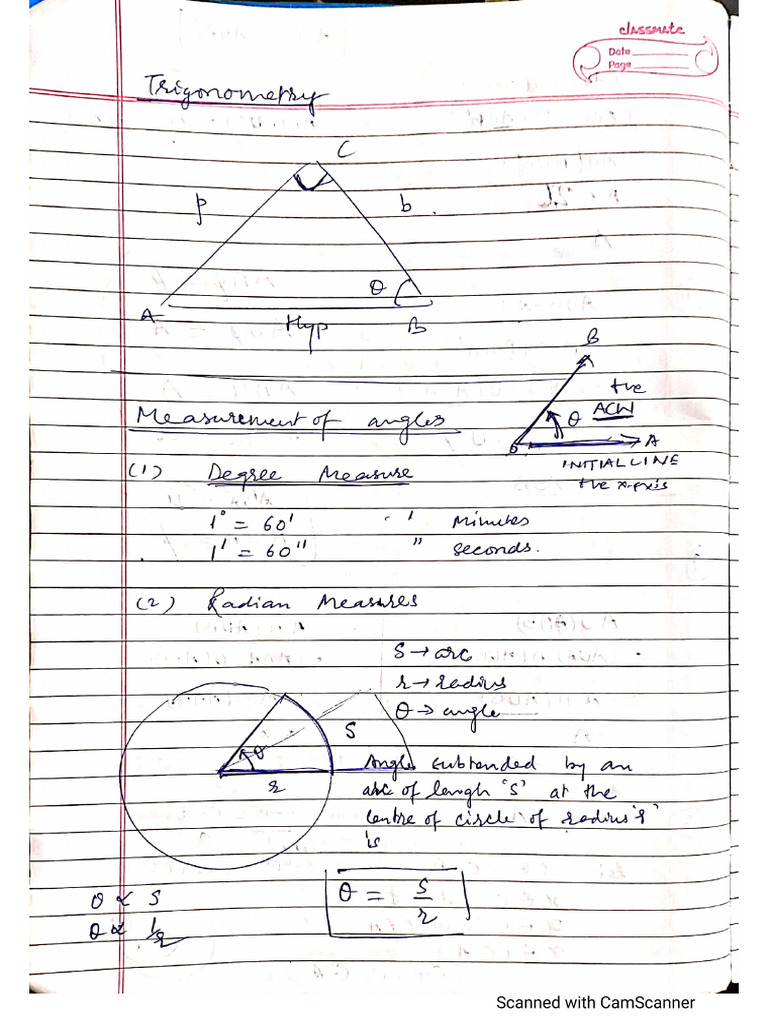 classmate
Date
Page
Trigonometry
C
p
b
θ
A
Hyp
B
B
+ve
ACW
θ
O
A
INITIAL LINE
+ve x-axis
Measurement of angles
(1) Degree Measure
1° = 60' ' Minutes
1' = 60" " seconds.
(2) Radian Measures
S → arc
r → radius
θ → angle
S
θ
r
Angle subtended by an
arc of lengh 'S' at the
centre of circle of radius 'r'
is
θ = s/r
θ ∝ S
θ ∝ 1/r
Scanned with CamScanner